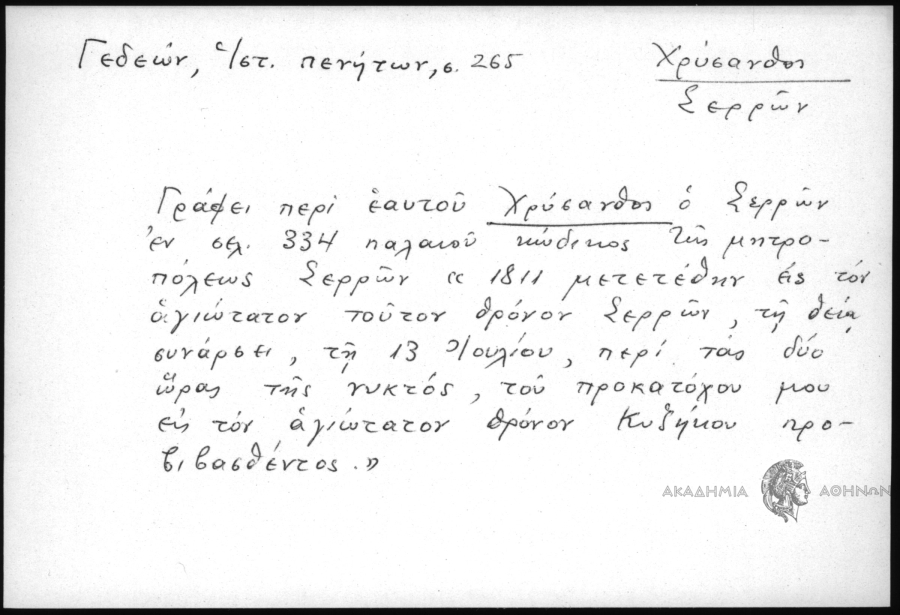 Γεδεών, Ἱστ. πενήτων, σ. 265
Χρύσανθος
Σερρῶν
Γράφει περὶ ἑαυτοῦ Χρύσανθος ὁ Σερρῶν
ἐν σελ. 334 παλαιοῦ κώδικος τῆς μητρο-
πόλεως Σερρῶν « 1811 μετετέθην εἰς τόν
ἁγιώτατον τοῦτον θρόνον Σερρῶν, τῇ θείᾳ
συνάρσει, τῇ 13 Ἰουλίου, περί τάς δύο
ὥρας τῆς νυκτός, τοῦ προκατόχου μου
εἰς τόν ἁγιώτατον θρόνον Κυζίκου προ-
βιβασθέντος.»
ΑΚΑΔΗΜΙΑ ΑΘΗΝΩΝ